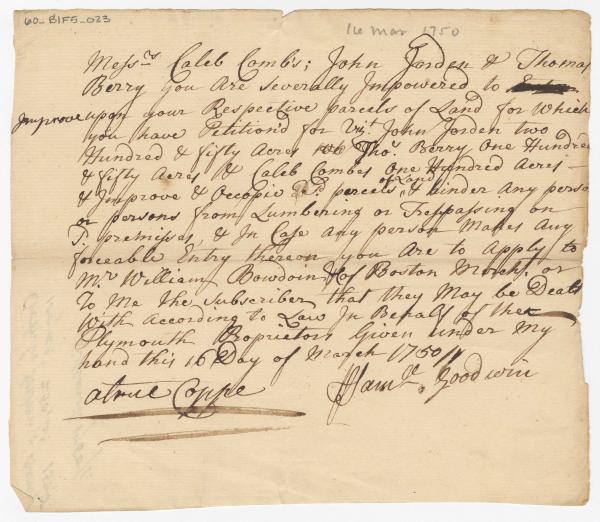 60_B1F5_023
16 Mar 1750
Mess.rs Caleb Combs; John Jorden & Thomas
Berry you Are Severally Impowered to
Improve upon your Respective parcels of Land for Which
you have Petition'd for Viz.t John Jorden two
Hundred & fifty Acres Tho.s Berry One Hundred
& fifty Acres & Caleb Combes One Hundred Acres
& Improve & Occopie S.d parcels of Land & hinder Any person
or persons from Lumbering or Trespassing on
S.d premisses, & In Case Any person Makes Any
forceable Entry thereon you Are to Apply to
M.r William Bowdoin of Boston March.t or
To Me the Subscriber that they May be Dealt
With According to Law In Behalf of the
Plymouth Proprietors Given under My
hand this 16 Day of March 1750
atrue Coppe Sam.ll Goodwin